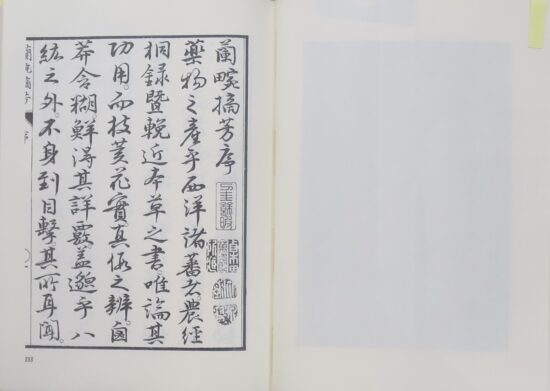 蘭畹摘芳序
藥物之產乎西洋諸蕃者。農經
桐錄暨輓近本草之書。唯論其
功用。而枝莖花實真假之辨。鹵
莽含糊。鮮得其詳覈。蓋邈乎八
紘之外。不身到目擊其所耳聞。
蘭畹摘芳
序
233